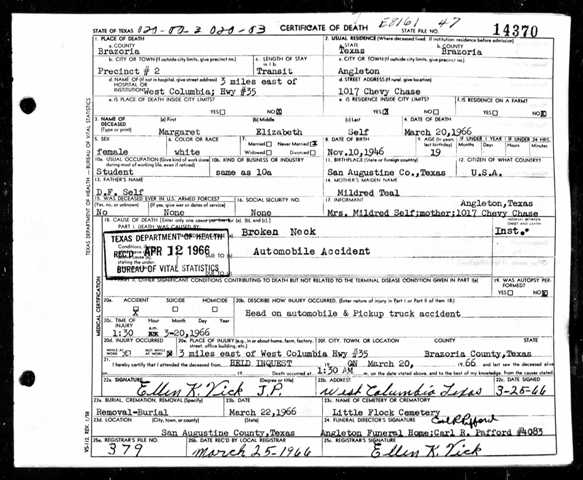 STATE OF TEXAS 020-00-3 020-03 CERTIFICATE OF DEATH E8161 47
STATE FILE NO. 14370
1. PLACE OF DEATH 2. USUAL RESIDENCE (Where deceased lived. If institution: residence before admission)
a. COUNTY a. STATE b. COUNTY
Brazoria Texas Brazoria
b. CITY OR TOWN (If outside city limits, give precinct no.) c. LENGTH OF STAY c. CITY OR TOWN (If outside city limits, give precinct no.)
Precinct # 2 Transit Angleton
d. NAME OF (If not in hospital, give street address) d. STREET ADDRESS (If rural, give location)
HOSPITAL OR INSTITUTION 3 miles east of
West Columbia; Hwy #35 1017 Chevy Chase
e. IS PLACE OF DEATH INSIDE CITY LIMITS? e. IS RESIDENCE INSIDE CITY LIMITS? f. IS RESIDENCE ON A FARM?
YES NO X YES X NO YES NO X
3. NAME OF DECEASED (a) First (b) Middle (c) Last 4. DATE OF DEATH
(Type or print) Margaret Elizabeth Self March 20, 1966
5. SEX 6. COLOR OR RACE 7. Married Never Married X 8. DATE OF BIRTH 9. AGE IF UNDER 1 YEAR IF UNDER 24 HRS.
Widowed Divorced Months Days Hours Min.
female white Nov.10,1946 19
10a. USUAL OCCUPATION (Give kind of work done 10b. KIND OF BUSINESS OR INDUSTRY 11. BIRTHPLACE (State or foreign country) 12. CITIZEN OF WHAT COUNTRY?
Student same as 10a San Augustine Co.,Texas U.S.A.
13. FATHER'S NAME 14. MOTHER'S MAIDEN NAME
D.F. Self Mildred Teal
15. WAS DECEASED EVER IN U.S. ARMED FORCES? 16. SOCIAL SECURITY NO. 17. INFORMANT Angleton,Texas
(Yes, no, or unknown) (If yes, give war or dates of service)
No None None Mrs. Mildred Self;mother:1017 Chevy Chase
18. CAUSE OF DEATH (Enter only one cause per line for (a), (b), and (c).)
PART I. DEATH WAS CAUSED BY:
Broken Neck Inst.
TEXAS DEPARTMENT OF HEALTH
REC'D APR 12 1966
BUREAU OF VITAL STATISTICS
Automobile Accident
OTHER SIGNIFICANT CONDITIONS CONTRIBUTING TO DEATH BUT NOT RELATED TO THE TERMINAL DISEASE CONDITION GIVEN IN PART I(a) 19. WAS AUTOPSY PERFORMED?
YES NO X
20a. ACCIDENT SUICIDE HOMICIDE 20b. DESCRIBE HOW INJURY OCCURRED. (Enter nature of injury in Part I or Part II of item 18.)
X Head on automobile & Pickup truck accident
20c. TIME OF INJURY Hour Month Day Year
1:30 3-20,1966
20d. INJURY OCCURRED 20e. PLACE OF INJURY (e.g., in or about home, farm, factory, street, office building, etc.) 20f. CITY, TOWN, OR LOCATION COUNTY STATE
3 miles east of West Columbia Hwy #35 Brazoria County,Texas
21. I hereby certify that I attended the deceased from HELD INQUEST ON March 20, 19 66 and last saw the deceased alive
Death occurred at 1:30 AM on the date stated above, and to the best of my knowledge, from the causes stated.
22a. SIGNATURE (Degree or title) 22b. ADDRESS 22c. DATE SIGNED
Ellen K. Vick J.P. West Columbia Texas 3-25-66
23a. BURIAL, CREMATION, REMOVAL (Specify) 23b. DATE 23c. NAME OF CEMETERY OR CREMATORY
Removal-Burial March 22,1966 Little Flock Cemetery
23d. LOCATION (City, town, or county) (State) 24. FUNERAL DIRECTOR'S SIGNATURE Carl R. Pafford
San Augustine County,Texas Angleton Funeral Home:Carl R. Pafford #4083
25a. REGISTRAR'S FILE NO. 25b. DATE REC'D BY LOCAL REGISTRAR 25c. REGISTRAR'S SIGNATURE
379 March 25-1966 Ellen K. Vick
TEXAS DEPARTMENT OF HEALTH — BUREAU OF VITAL STATISTICS
MEDICAL CERTIFICATION